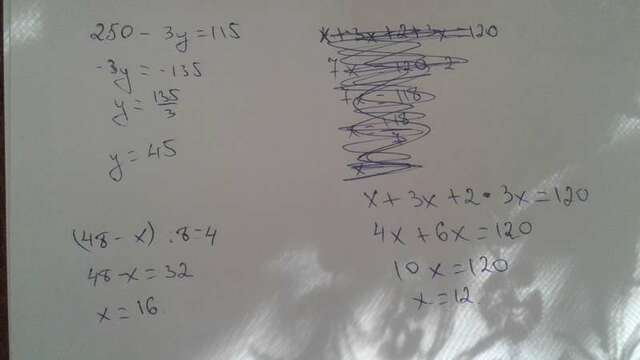 250 - 3y = 115
-3y = -135
y = 135/3
y = 45
(48 - x) : 8 = 4
48 - x = 32
x = 16
x + 3x + 2 • 3x = 120
4x + 6x = 120
10x = 120
x = 12